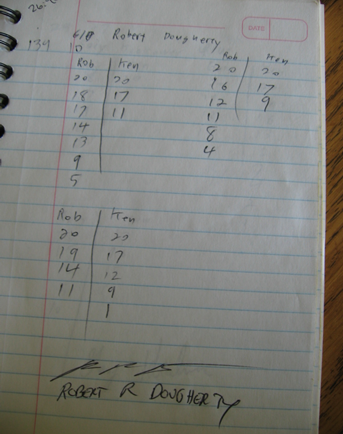 139
Robert Dougherty
DATE
Rob Ken
20 20
18 17
17 11
14
13
9
5
Rob Ken
20 20
16 17
12 9
11
8
4
Rob Ken
20 20
19 17
14 12
11 9
1
ROBERT R DOUGHERTY